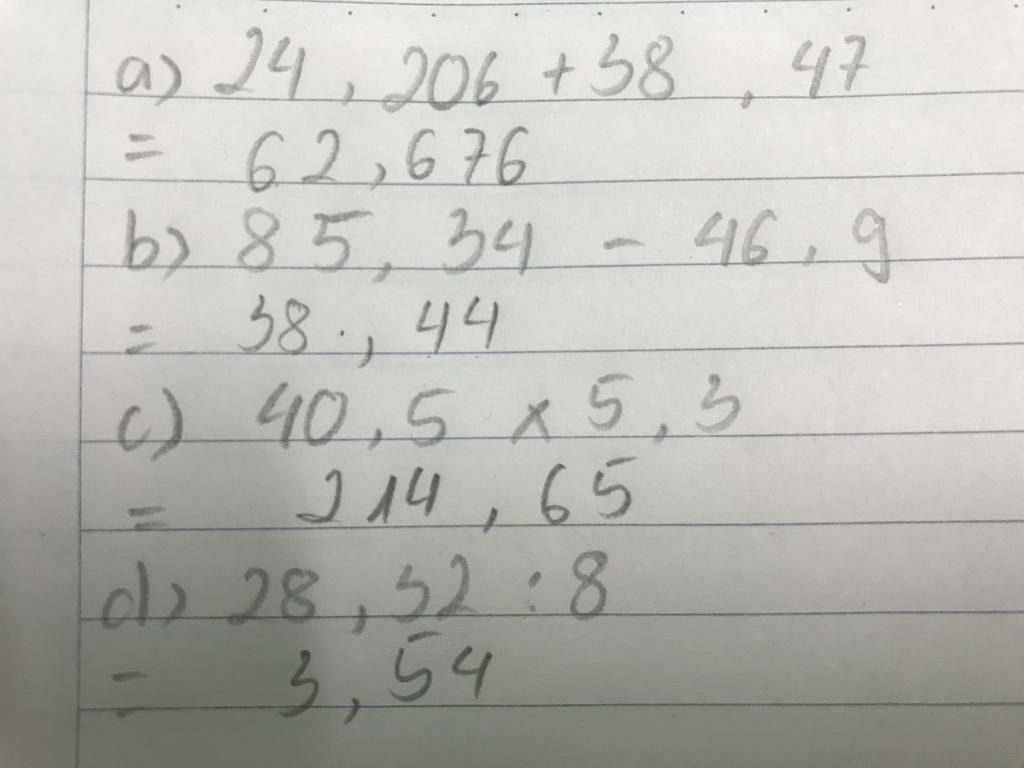 a) 24, 206 + 38, 47
= 62, 676
b) 85, 34 - 46, 9
= 38., 44
c) 40, 5 x 5, 3
= 214, 65
d) 28, 32 : 8
= 3, 54